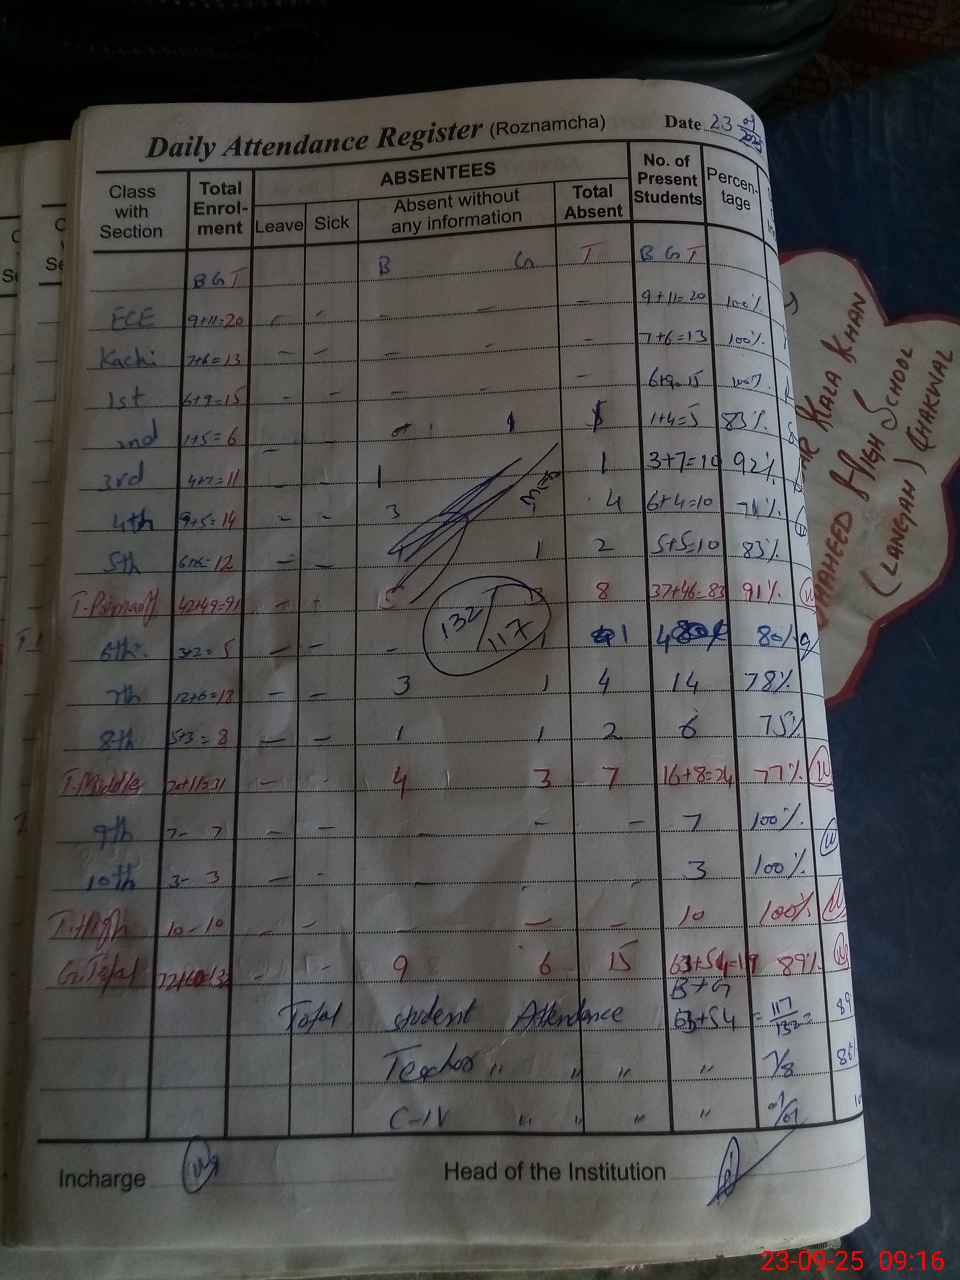 Daily Attendance Register (Roznamcha) Date 23
Class with Section Total Enrol-ment ABSENTEES Leave Sick Absent without any information Total Absent No. of Present Students Percen-tage
B G T B G T B G T
ECE 9+11=20 - - - - - 9+11=20 100%
Kachi 7+6=13 - - - - - 7+6=13 100%
1st 6+9=15 - - - - - 6+9=15 100%
2nd 1+5=6 - - 1 1+4=5 83%
3rd 4+7=11 - - 1 1 3+7=10 92%
4th 9+5=14 - - 3 4 6+4=10 71%
5th 6+6=12 - - 1 2 5+5=10 83%
42+49=91 5 3 8 37+46=83 91%
132/117
6th 3+2=5 - - - 1 1 4 80%
7th 12+6=18 - - 3 1 4 14 78%
8th 5+3=8 - - 1 1 2 6 75%
T.Middle 20+11=31 - - 4 3 7 16+8=24 77%
9th 7- 7 - - - - - 7 100%
10th 3- 3 - - - 3 100%
T.High 10-10 - - - - - 10 100%
G.Total 72+60=132 - - 9 6 15 63+54=117 89%
B+G
Total student Attendance 63+54 = 117/132 = 89
Teacher " " " " 7/8
C-IV " " " "
Incharge Head of the Institution
KALA KHAN
SHAHEED HIGH SCHOOL
(LANGAH) CHAKWAL
23-09-25 09:16